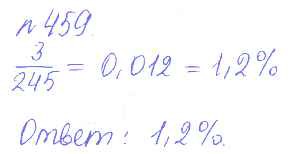 №459.
3/245 = 0,012 = 1,2%
Ответ: 1,2%.